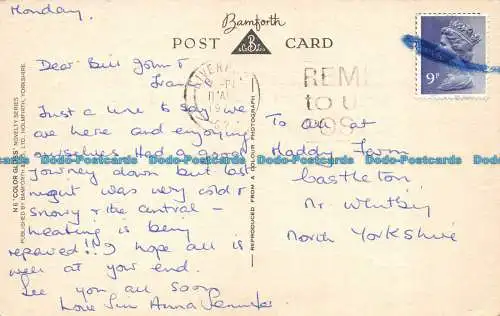 Monday.
Bamforth
POST CARD
Dear Bill John &
Just a line to say we
are here and enjoying
ourselves. Had a good
journey down but last
night was very cold &
snowy & the central –
heating is being
repaired!!! I hope all is
well at your end.
See you all soon
Love Jim Anna Jennifer
N B "COLOR GLOSS" NOVELTY SERIES
PUBLISHED BY BAMFORTH & CO., LTD., HOLMFIRTH, YORKSHIRE.
REPRODUCED FROM A COLOUR PHOTOGRAPH
REME
to U
9P
To all at
Haddy Farm
Castleton
Nr. Whitby
North Yorkshire
Dodo-Postcards Dodo-Postcards Dodo-Postcards Dodo-Postcards Dodo-Postcards